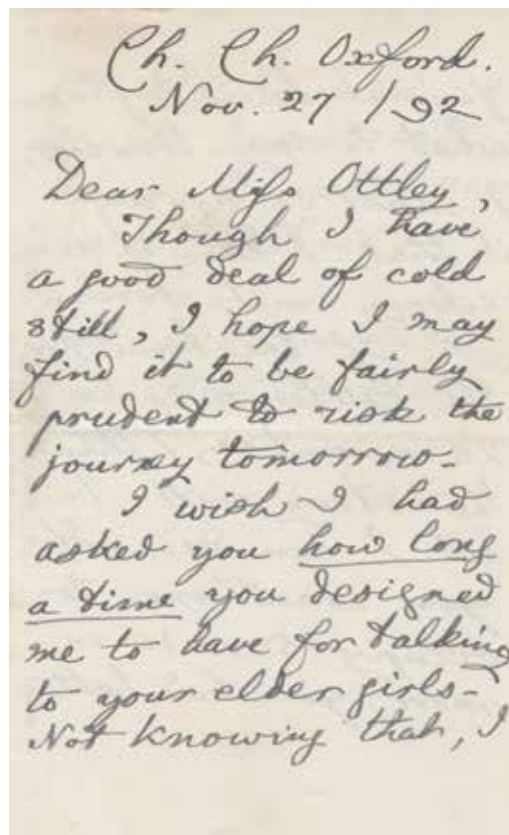 Ch. Ch. Oxford.
Nov. 27 /92
Dear Miss Ottley,
Though I have
a good deal of cold
still, I hope I may
find it to be fairly
prudent to risk the
journey tomorrow.
I wish I had
asked you how long
a time you designed
me to have for talking
to your elder girls.
Not knowing that, I